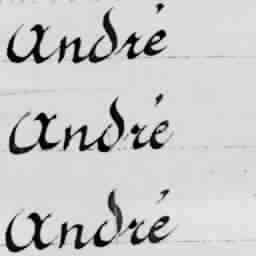 André
André
André